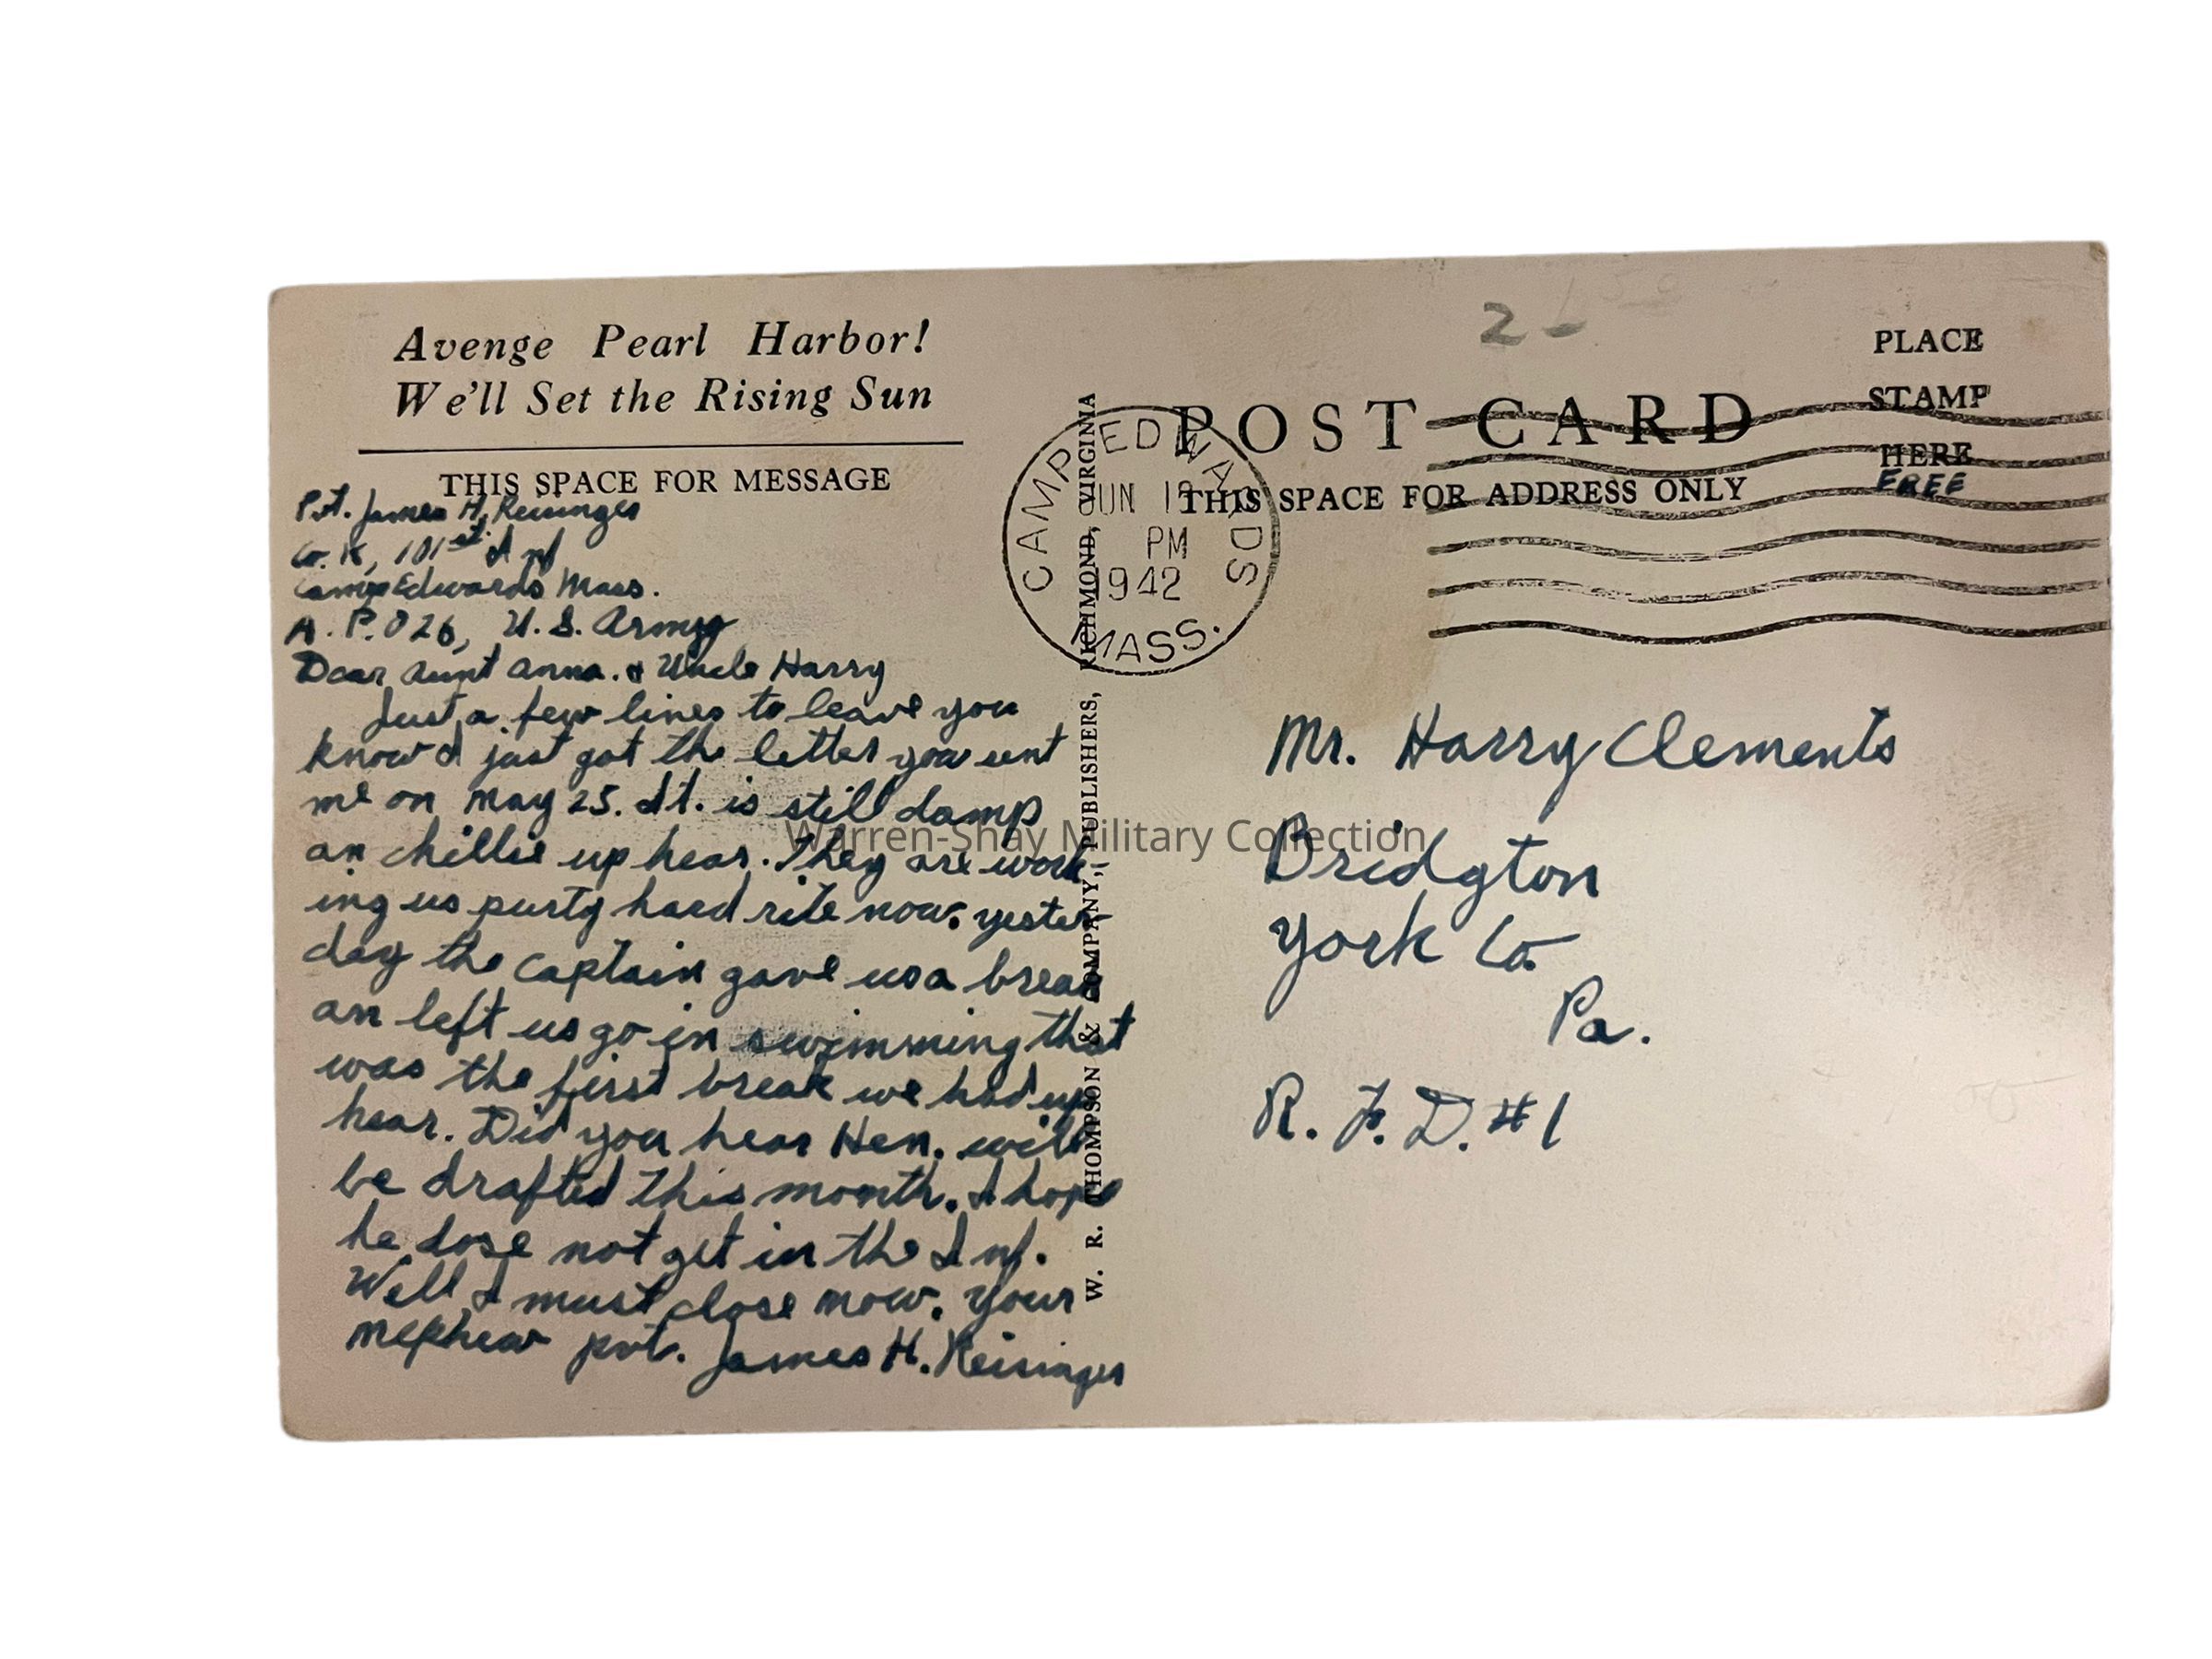 Avenge Pearl Harbor!
We'll Set the Rising Sun
THIS SPACE FOR MESSAGE
Pvt. James H. Reisinger
Co. K, 101st Inf
Camp Edwards Mass.
A. P. O 26, U. S. Army
Dear Aunt Anna. & Uncle Harry
Just a few lines to leave you
know I just got the letter you sent
me on May 25. It. is still damp
an chillie up hear. They are work
ing us purty hard rite now. yester-
day the Captain gave us a break
an left us go in swimming that
was the first break we had up
hear. Did you hear Hen. will
be drafted this month. I hope
he dose not get in the Inf.
Well I must close now. your
nephew pvt. James H. Reisinger
W. R. THOMPSON & COMPANY, PUBLISHERS, RICHMOND, VIRGINIA
CAMP EDWARDS
JUN
PM
1942
MASS.
2-
POST CARD
THIS SPACE FOR ADDRESS ONLY
PLACE
STAMP
HERE
FREE
Mr. Harry Clements
Bridgton
York Co.
Pa.
R. F. D. #1
Warren-Shay Military Collection